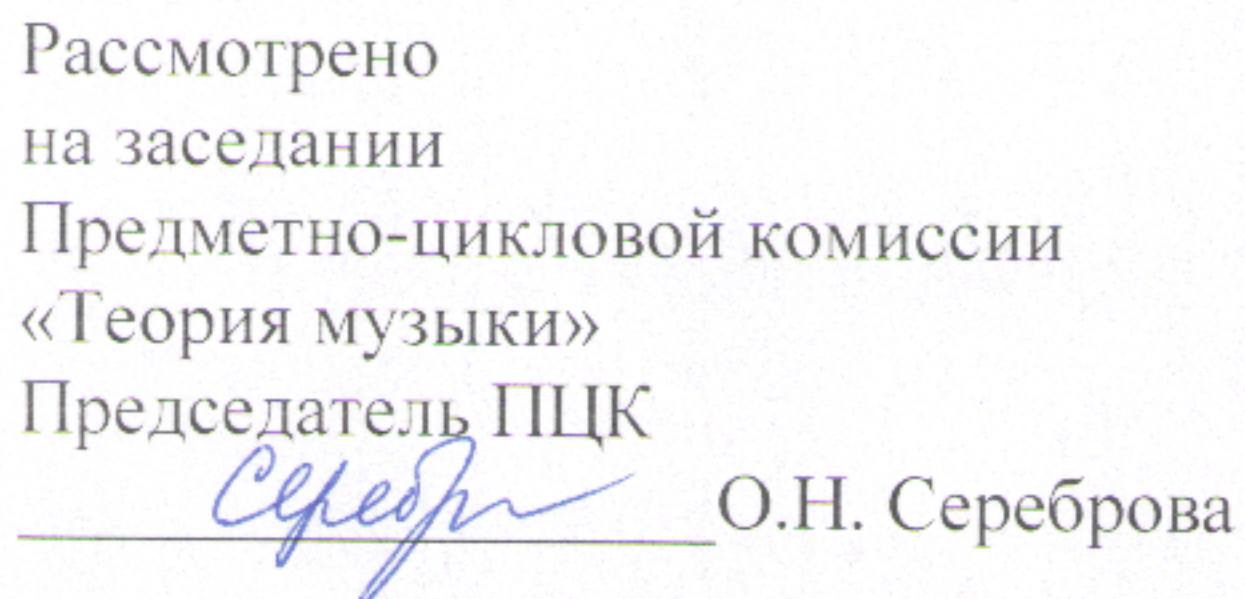 Рассмотрено
на заседании
Предметно-цикловой комиссии
«Теория музыки»
Председатель ПЦК
О.Н. Сереброва